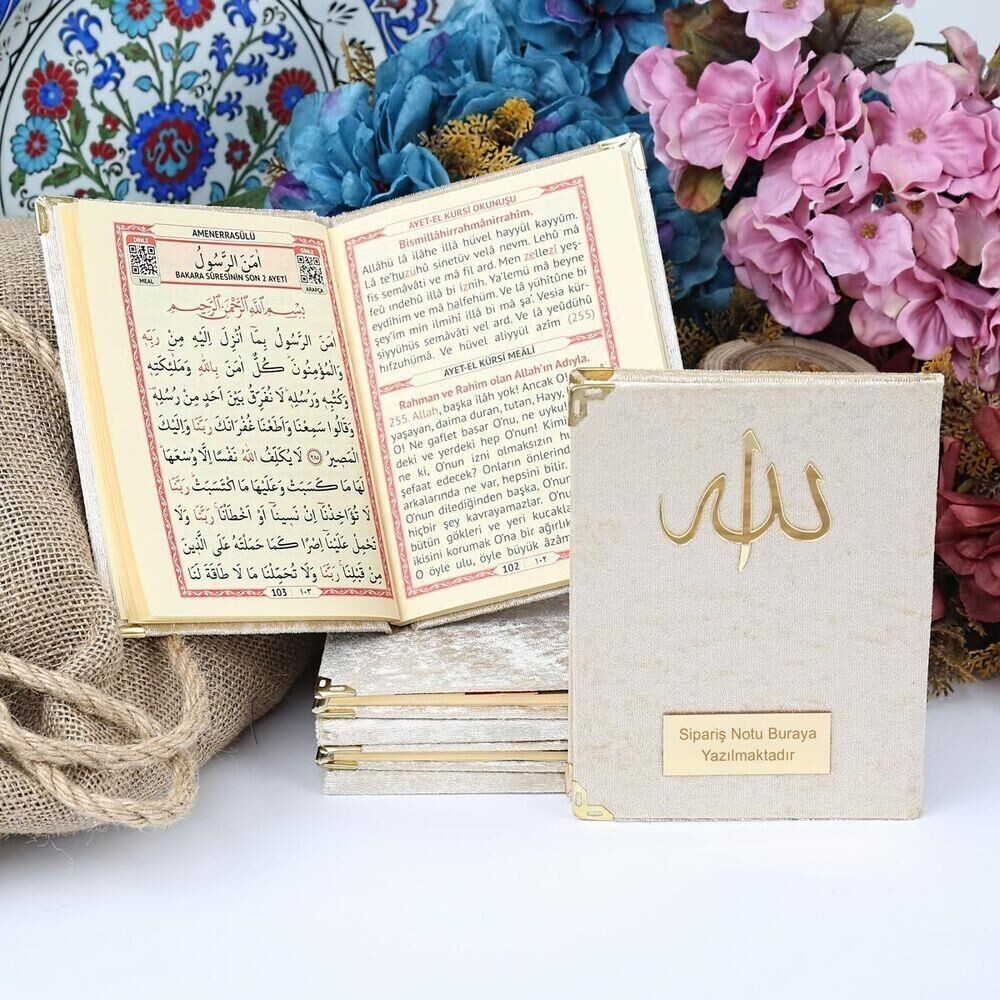 AMENERRASÛLÜ
DİNLE
MEAL
اٰمَنَ الرَّسُولُ
BAKARA SÛRESİNİN SON 2 AYETİ
DİNLE
ARAPÇA
بِسْمِ اللّٰهِ الرَّحْمٰنِ الرَّحِيمِ
اٰمَنَ الرَّسُولُ بِمَٓا اُنْزِلَ اِلَيْهِ مِنْ رَبِّه۪
وَالْمُؤْمِنُونَ كُلٌّ اٰمَنَ بِاللّٰهِ وَمَلٰٓئِكَتِه۪
وَكُتُبِه۪ وَرُسُلِه۪ لَا نُفَرِّقُ بَيْنَ اَحَدٍ مِنْ رُسُلِه۪
وَقَالُوا سَمِعْنَا وَاَطَعْنَا غُفْرَانَكَ رَبَّنَا وَاِلَيْكَ
الْمَص۪يرُ ﴿٢٨٥﴾ لَا يُكَلِّفُ اللّٰهُ نَفْسًا اِلَّا وُسْعَهَا
لَهَا مَا كَسَبَتْ وَعَلَيْهَا مَا اكْتَسَبَتْ رَبَّنَا
لَا تُؤَاخِذْنَٓا اِنْ نَس۪ينَٓا اَوْ اَخْطَأْنَا رَبَّنَا وَلَا
تَحْمِلْ عَلَيْنَٓا اِصْرًا كَمَا حَمَلْتَهُ عَلَى الَّذ۪ينَ
مِنْ قَبْلِنَا رَبَّنَا وَلَا تُحَمِّلْنَا مَا لَا طَاقَةَ لَنَا
103 ١٠٣
AYET-EL KÜRSİ OKUNUŞU
Bismillâhirrahmânirrahim.
Allâhü lâ ilâhe illâ hüvel hayyül kayyûm.
Lâ te'huzühû sinetüv velâ nevm. Lehû mâ
fis semâvâti ve mâ fil ard. Men zellezi yeş-
feu ındehû illâ bi iznih. Ya'lemü mâ beyne
eydîhim ve mâ halfehüm. Ve lâ yühîtûne bi
şey'im min ilmihî illâ bi mâ şa'. Vesia kür-
siyyühüs semâvâti vel ard. Ve lâ yeûdühû
hıfzuhümâ. Ve hüvel aliyyül azîm (255)
AYET-EL KÜRSİ MEALİ
Rahman ve Rahim olan Allah'ın Adıyla.
255. Allah, başka ilâh yok! Ancak O
yaşayan, daima duran, tutan, Hayy,
O! Ne gaflet basar O'nu, ne uyku!
deki ve yerdeki hep O'nun! Kim
ne ki, O'nun izni olmaksızın hu
şefaat edecek? Onların önlerind
arkalarında ne var, hepsini bilir.
O'nun dilediğinden başka, O'nun
hiçbir şey kavrayamazlar. O'nun
bütün gökleri ve yeri kucakla
ikisini korumak O'na bir ağırlık
O öyle ulu, öyle büyük âzam
102 ١٠٢
الله
Sipariş Notu Buraya
Yazılmaktadır